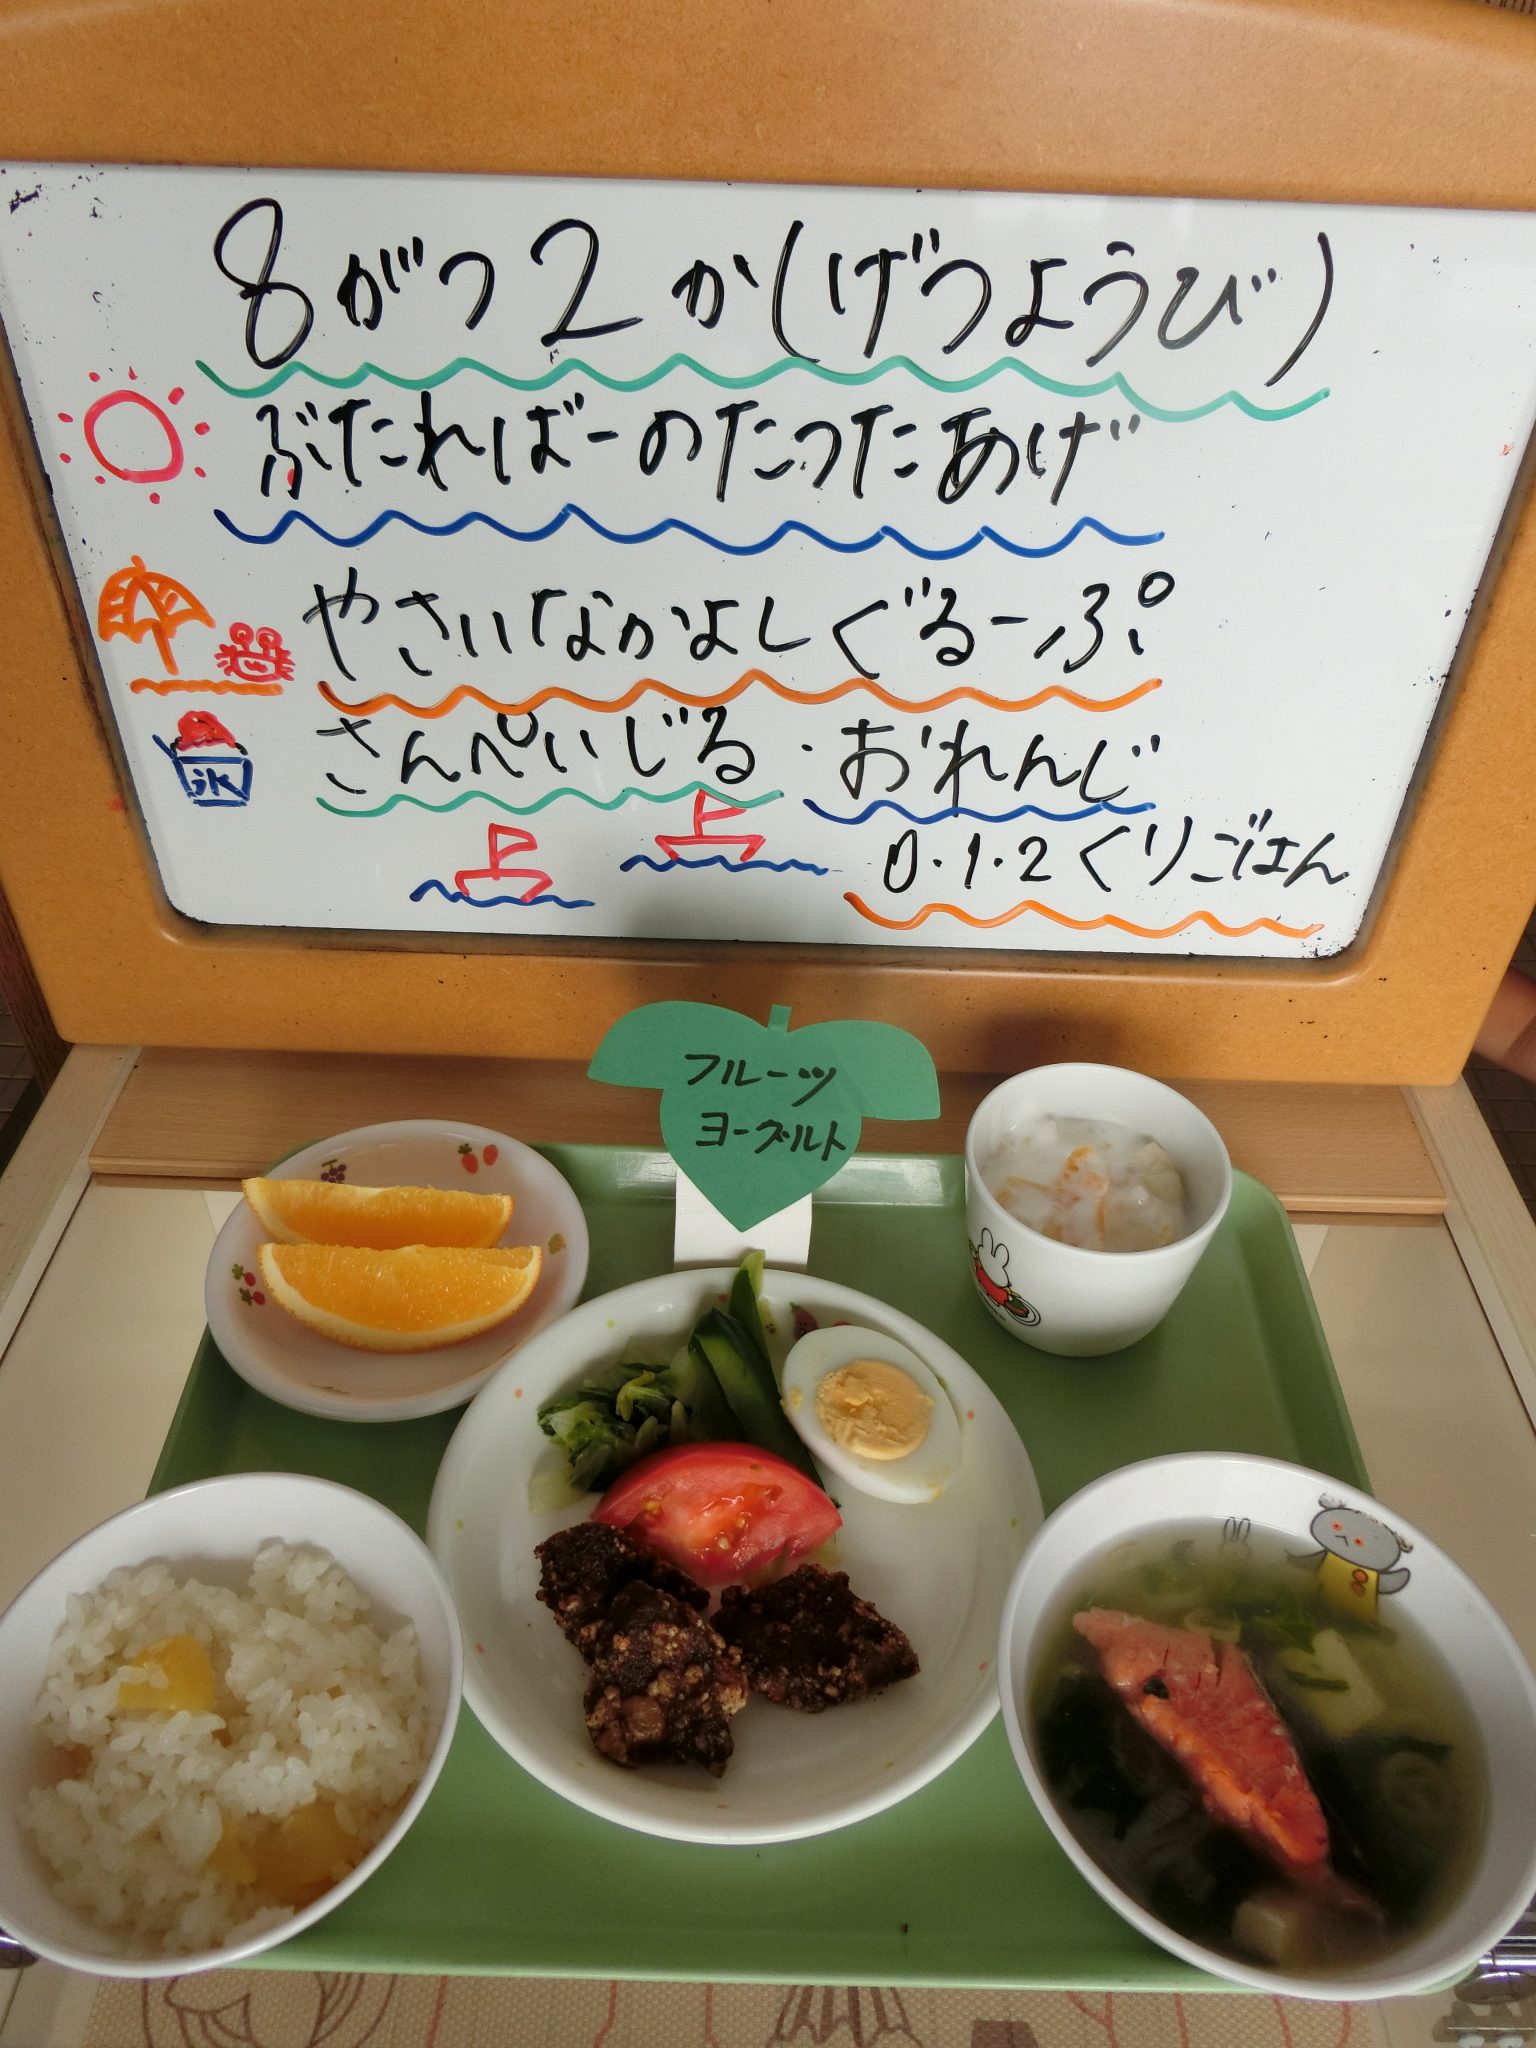 8がつ2か(げつようび)
ぶたればーのたつたあげ
やさいなかよしぐるーぷ
さんぺいじる・おれんじ
氷
0・1・2くりごはん
フルーツ
ヨーグルト